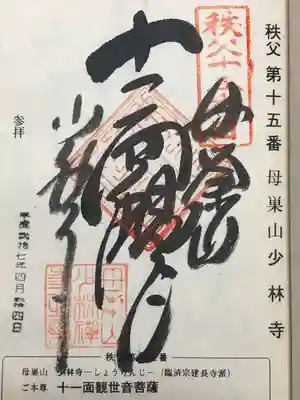 秩父第十五番 母巣山少林寺
秩父十五番
母巣山
十一面観世音
少林寺
参拝
平成弐拾七年四月拾四日
秩
番
母巣山 少林寺―しょうりんじ―（臨済宗建長寺派）
ご本尊 十一面観世音菩薩